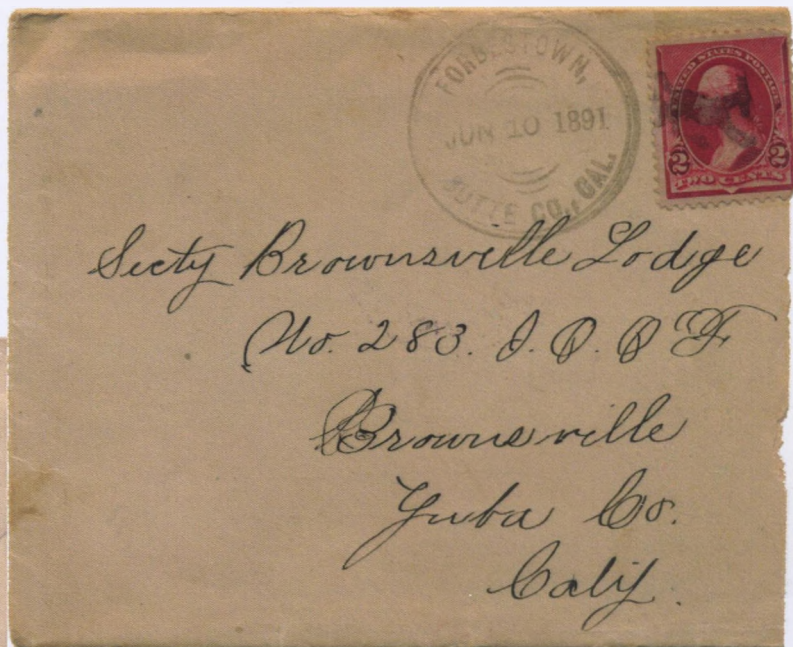 FORBESTOWN,
JUN 10 1891
BUTTE CO., CAL.
UNITED STATES POSTAGE
2 2
TWO CENTS
Secty Brownsville Lodge
No. 283. I. O. O F
Brownsville
Yuba Co.
Calif.